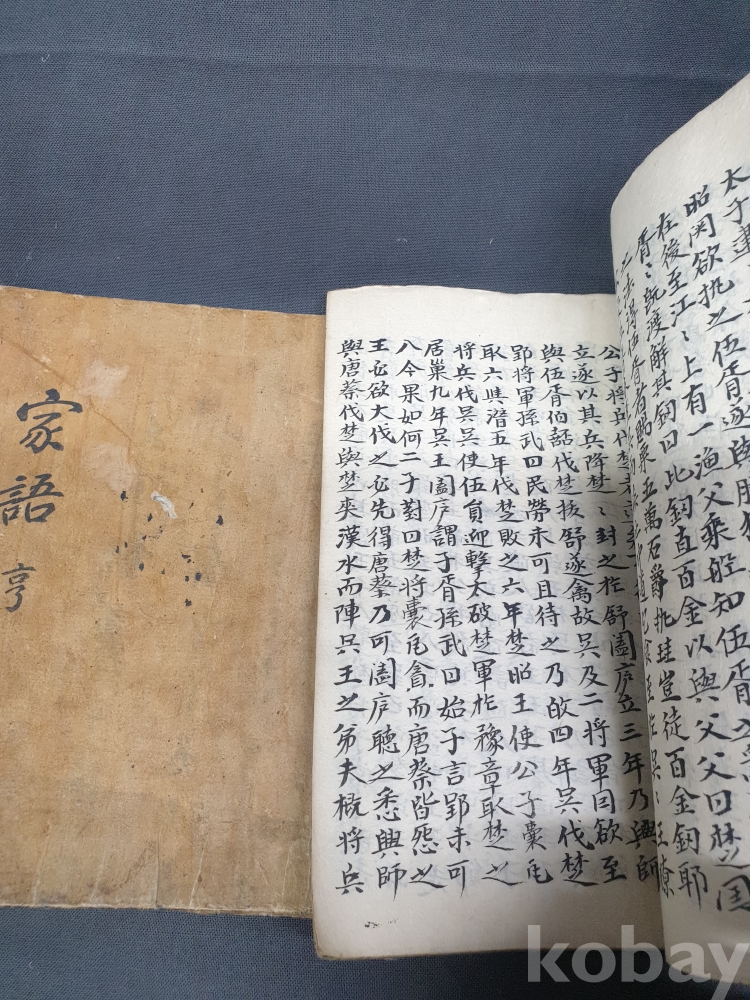 家語
亨
太子建
昭関欲執之伍胥遂與勝
在後至江ミ上有一漁父乗舩知伍胥之急
胥ミ既渡解其釰曰此釰直百金以與父父曰楚国
得伍胥者賜粟五萬石爵執珪豈徒百金釰耶
公子将兵伐楚
立遂以其兵降楚ミ封之於舒闔庐立三年乃興師
與伍胥伯嚭伐楚抜舒遂禽故呉及二将軍因欲至
郢将軍孫武曰民勞未可且待之乃敀四年呉伐楚
取六與潜五年伐楚敗之六年楚昭王使公子囊瓦
将兵伐呉呉使伍員迎擊大破楚軍於豫章取楚之
居巢九年呉王闔庐謂子胥孫武曰始子言郢未可
八今果如何二子對曰楚将囊瓦貪而唐蔡皆怨之
王必欲大伐之必先得唐蔡乃可闔庐聴之悉興師
與唐蔡伐楚與楚夾漢水而陣呉王之弟夫概将兵
kobay